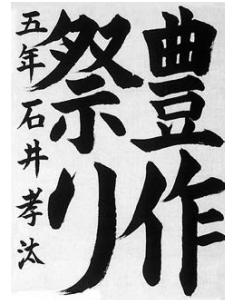 豊作
祭り
五年石井孝汰